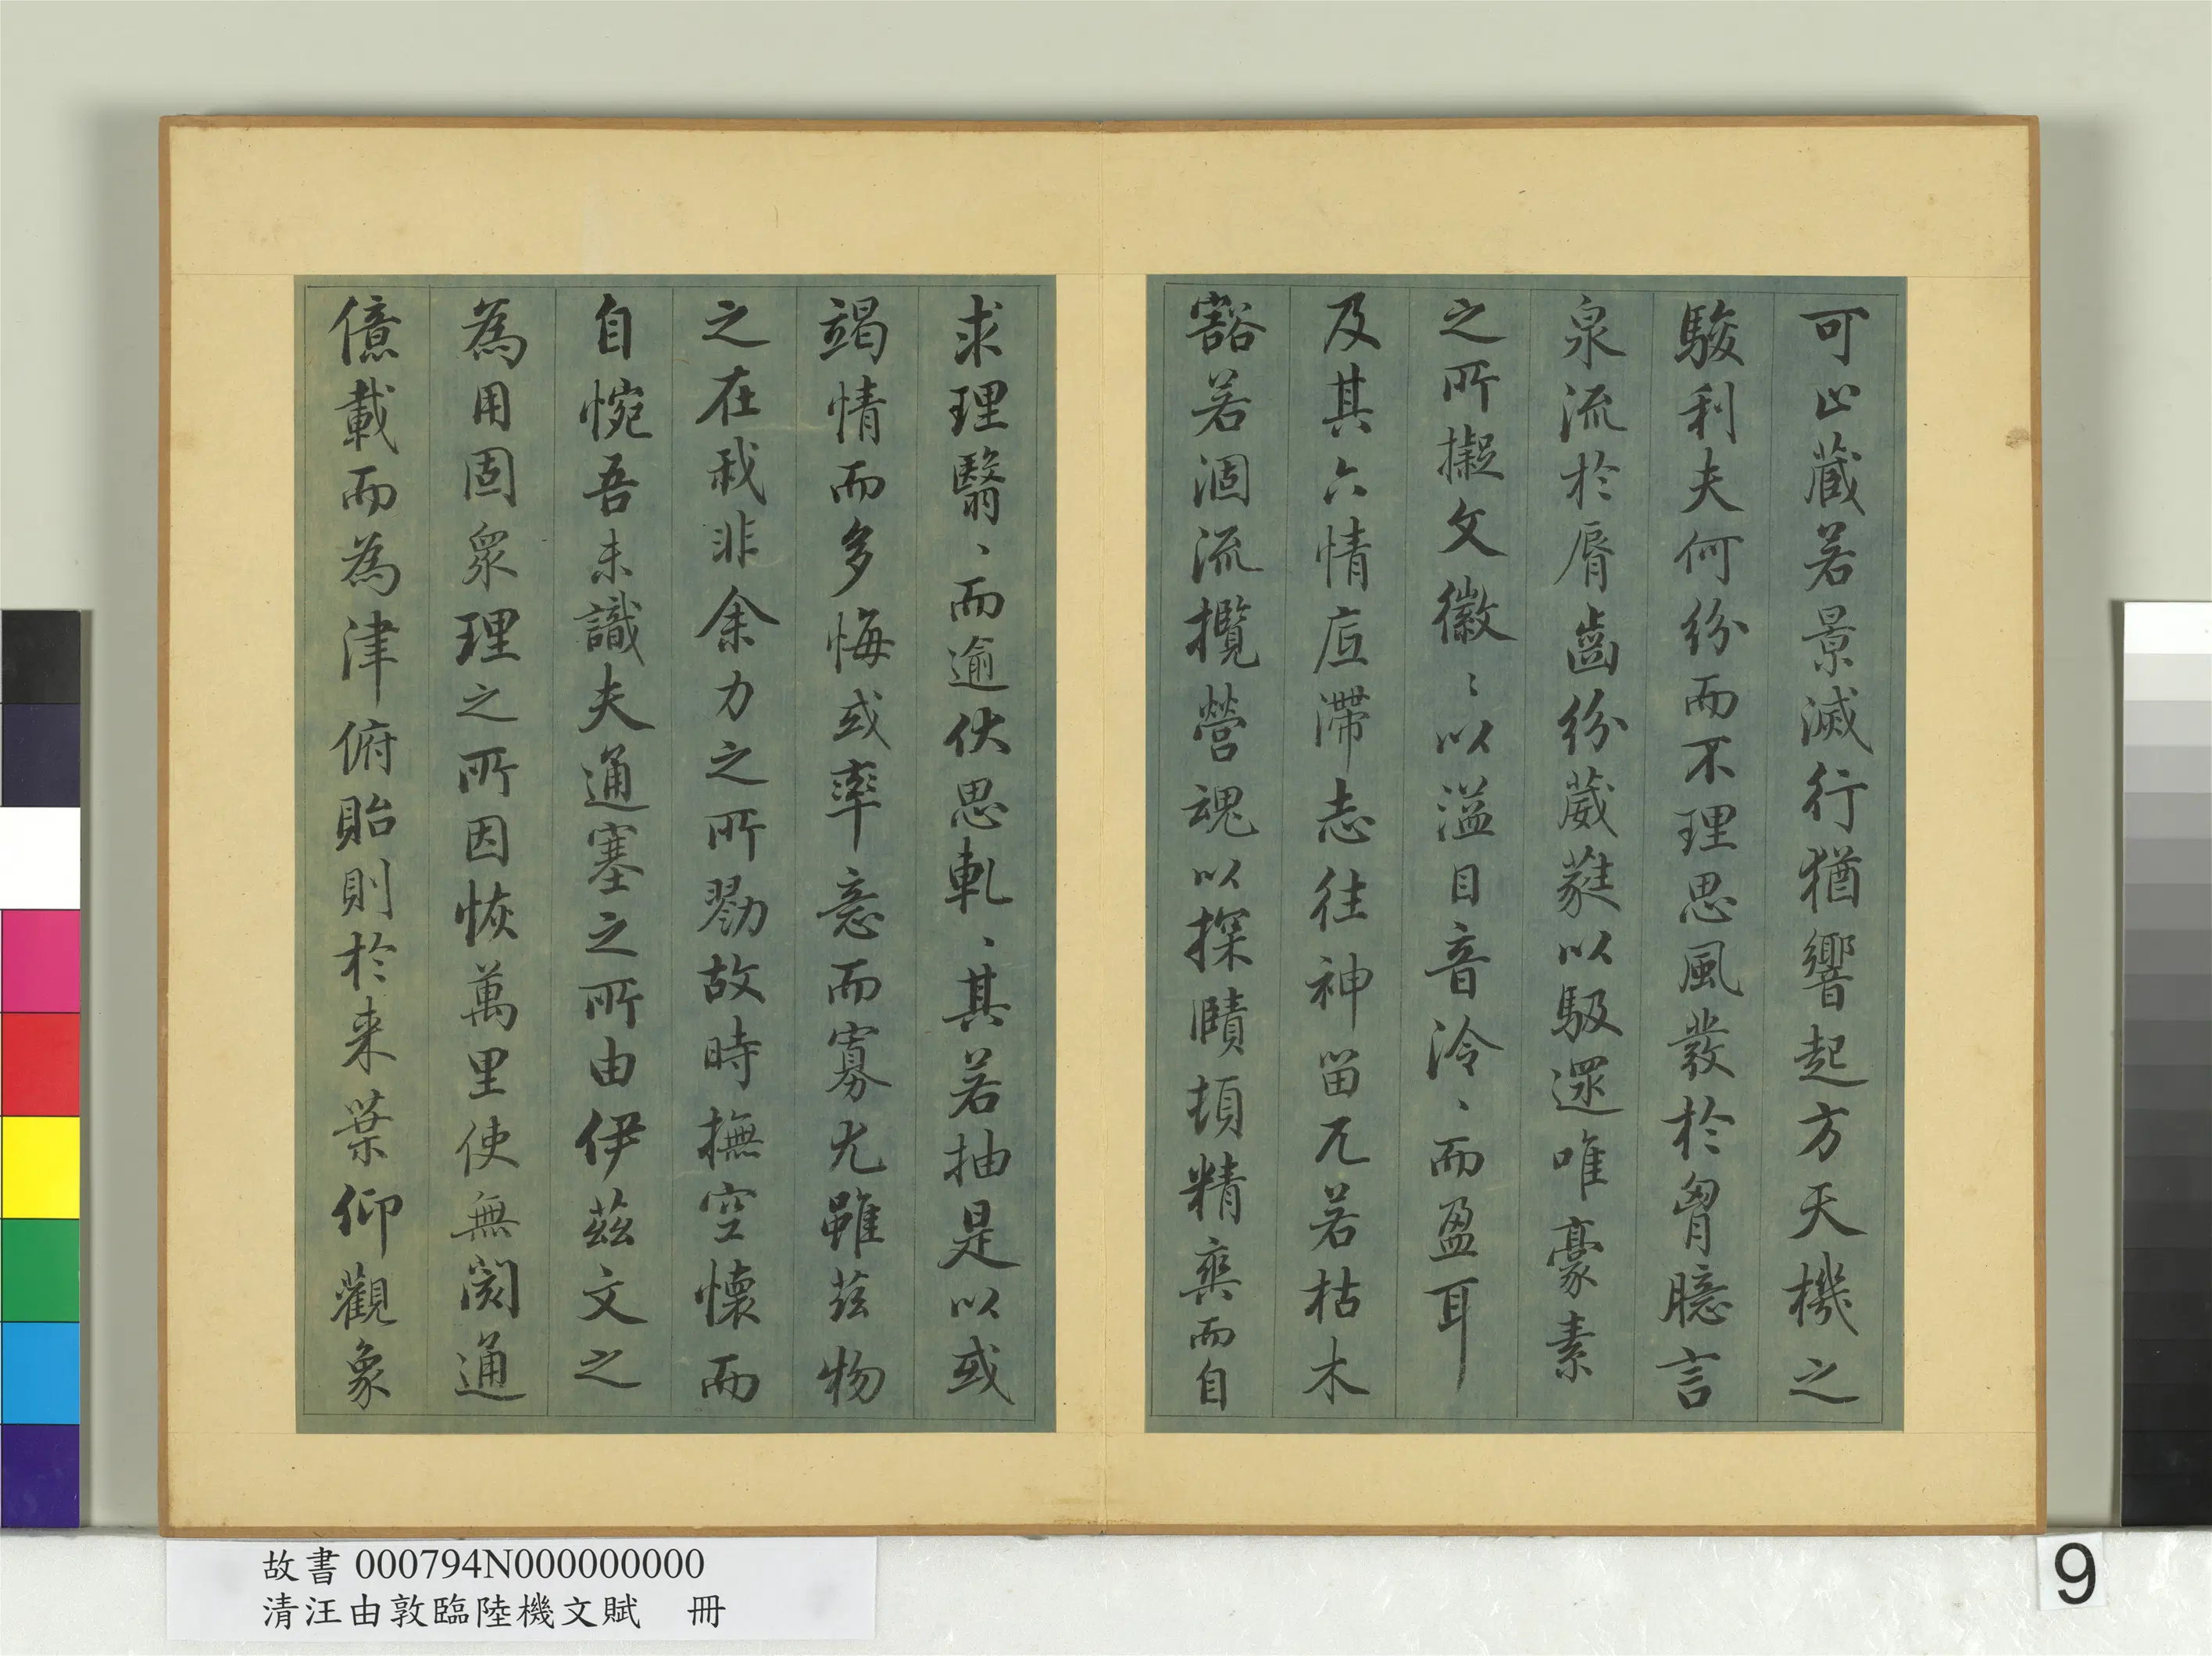 可止藏若景滅行猶響起方天機之
駿利夫何紛而不理思風發於胷臆言
泉流於脣齒紛葳蕤以馺遝唯豪素
之所擬文徽〻以溢目音泠〻而盈耳
及其六情底滯志往神留兀若枯木
豁若涸流攬營魂以探賾頓精爽而自
求理翳〻而逾伏思軋〻其若抽是以或
竭情而多悔或率意而寡尤雖茲物
之在我非余力之所勠故時撫空懷而
自惋吾未識夫通塞之所由伊茲文之
為用固衆理之所因恢萬里使無閡通
億載而為津俯貽則於来葉仰觀象
故書 000794N000000000
清汪由敦臨陸機文賦 冊
9